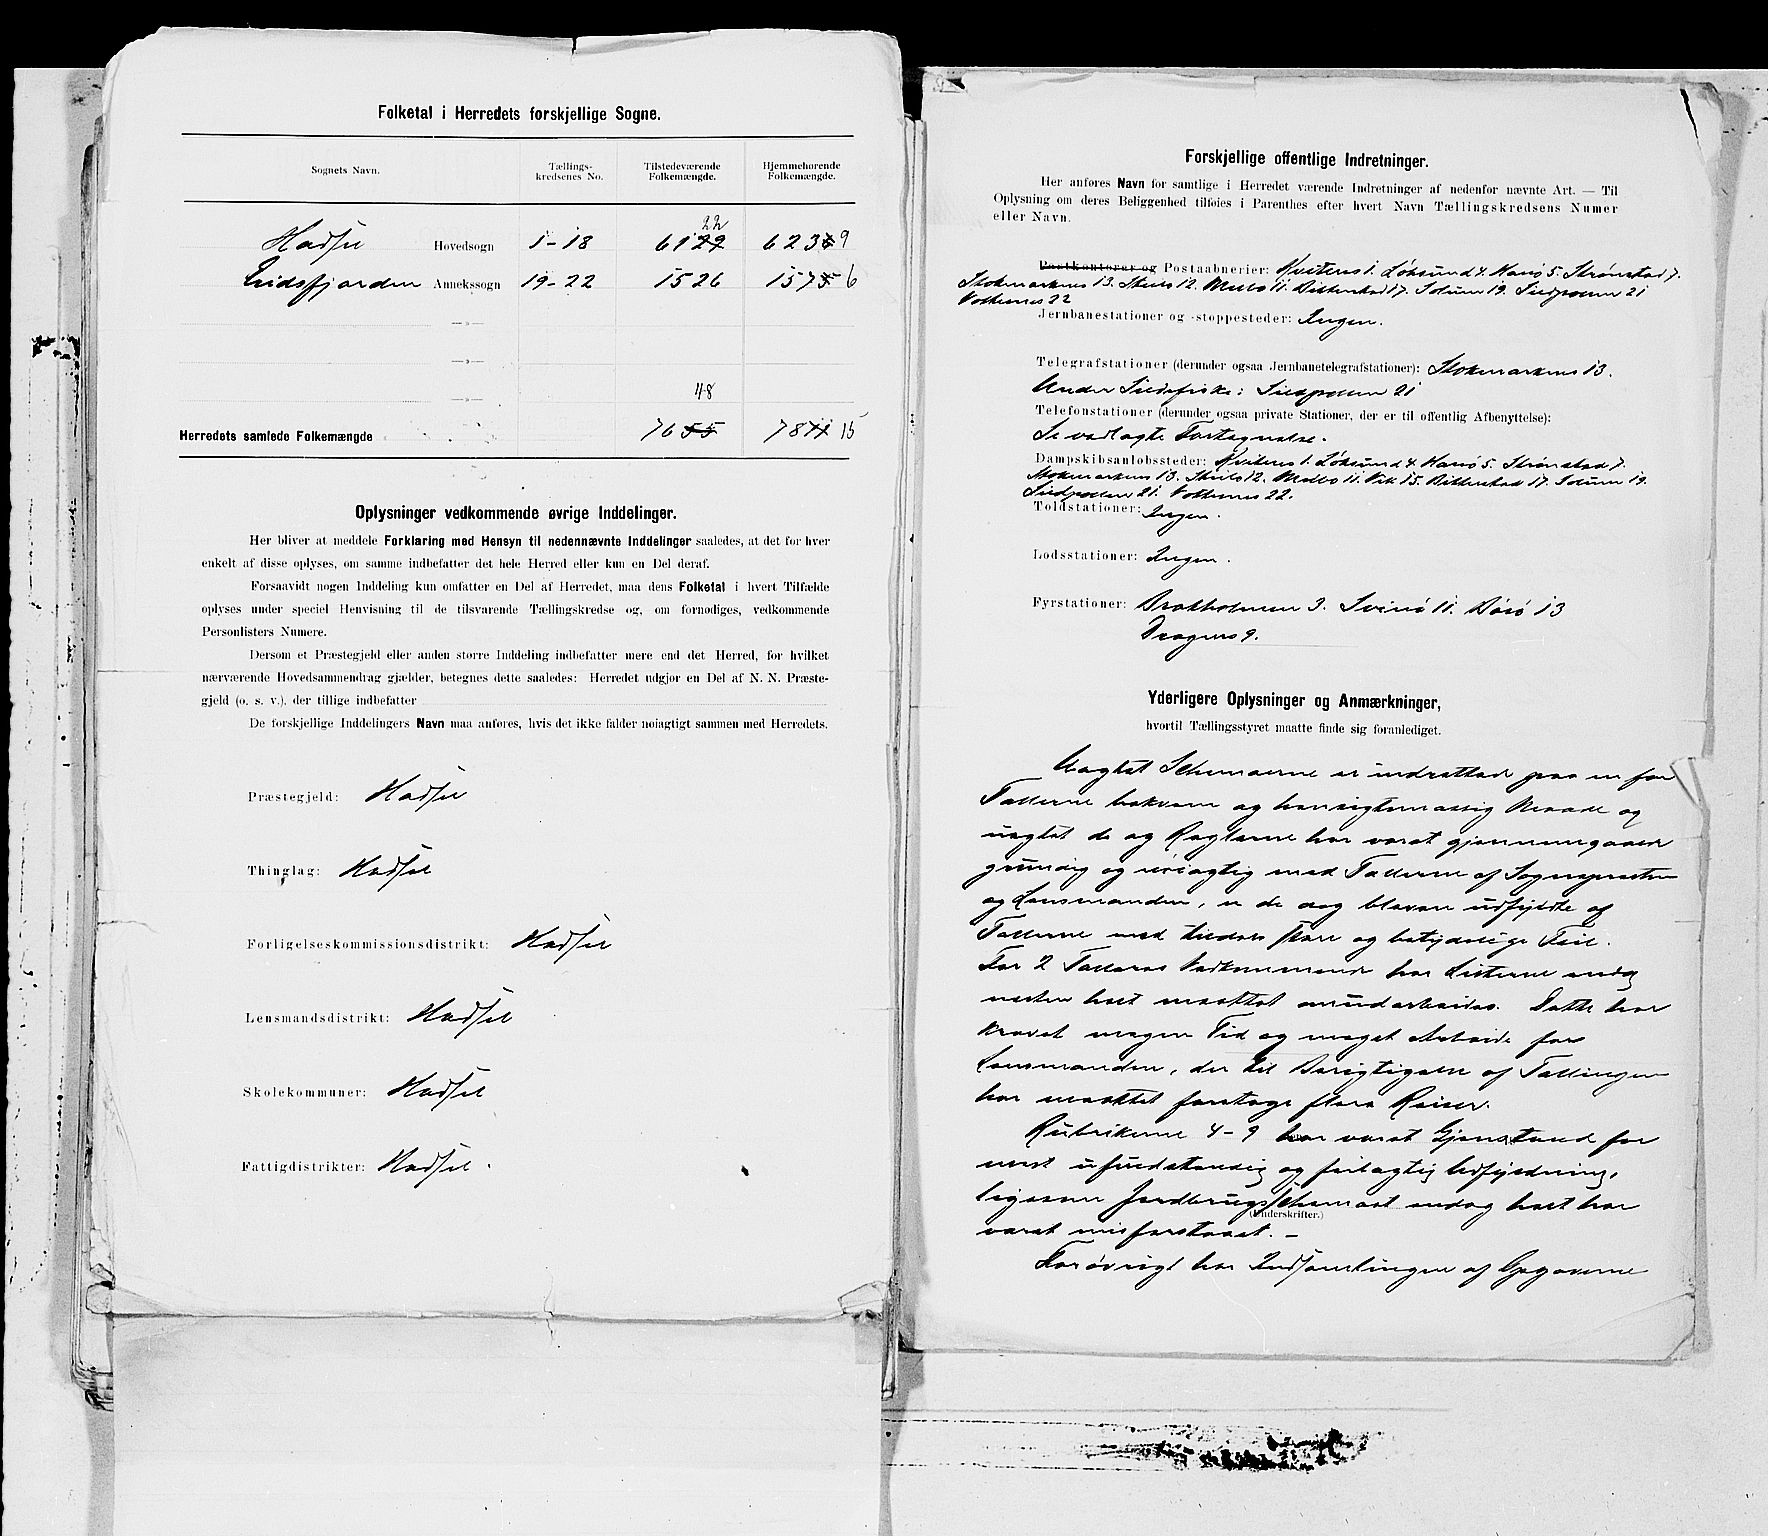 Folketal i Herredets forskjellige Sogne.
Sognets Navn. Tællings-kredsenes No. Tilstedeværende Folkemængde. Hjemmehørende Folkemængde.
22
Hadsel Hovedsogn 1-18 6122 6236 9
Eidsfjorden Annekssogn 19-22 1526 1575 6
—„—
—„—
48
—„—
Herredets samlede Folkemængde 7655 7811 15
Oplysninger vedkommende øvrige Inddelinger.
Her bliver at meddele Forklaring med Hensyn til nedennævnte Inddelinger saaledes, at det for hver
enkelt af disse oplyses, om samme indbefatter det hele Herred eller kun en Del deraf.
Forsaavidt nogen Inddeling kun omfatter en Del af Herredet, maa dens Folketal i hvert Tilfælde
oplyses under speciel Henvisning til de tilsvarende Tællingskredse og, om fornødiges, vedkommende
Personlisters Numere.
Dersom et Præstegjeld eller anden større Inddeling indbefatter mere end det Herred, for hvilket
nærværende Hovedsammendrag gjælder, betegnes dette saaledes: Herredet udgjør en Del af N. N. Præste-
gjeld (o. s. v.), der tillige indbefatter
De forskjellige Inddelingers Navn maa anføres, hvis det ikke falder nøiagtigt sammen med Herredets.
Præstegjeld: Hadsel
Thinglag: Hadsel
Forligelseskommissionsdistrikt: Hadsel
Lensmandsdistrikt: Hadsel
Skolekommuner: Hadsel
Fattigdistrikter: Hadsel.
Forskjellige offentlige Indretninger.
Her anføres Navn for samtlige i Herredet værende Indretninger af nedenfor nævnte Art. — Til
Oplysning om deres Beliggenhed tilføies i Parenthes efter hvert Navn Tællingskredsens Numer
eller Navn.
Postkontorer og Postaabnerier: Kvitnes 1. Løksund 4. Hanø 5. Strønstad 7.
Stokmarknes 13. Skuls 12. Melbo 11. Bitterstad 17. Sildpollen 21
Volkenes 22
Jernbanestationer og -stoppesteder: Ingen.
Telegrafstationer (derunder ogsaa Jernbanetelegrafstationer): Stokmarknes 13.
Under Sildefiske: Sildpollen 21
Telefonstationer (derunder ogsaa private Stationer, der er til offentlig Afbenyttelse):
Se vedlagte Fortegnelse.
Dampskibsanløbssteder: Kvitnes 1. Løksund 4. Hanø 5. Strønstad 7.
Stokmarknes 13. Skuls 12. Melbo 11. Vik 15. Bitterstad 17.
Sildpollen 21. Volkenes 22.
Toldstationer: Ingen.
Lodsstationer: Ingen.
Fyrstationer: Brakholmen 3. Svinø 11. Børø 13
Yderligere Oplysninger og Anmærkninger,
hvortil Tællingsstyret maatte finde sig foranlediget.
Uagtet Schemaerne er indrettede paa en for
Tællerne bekvem og hensigtsmæssig Maade og
uagtet de og Reglerne har været gjennemgaaede
grundig og nøiagtig med Tællerne af Sognepresten
og Lensmanden, er de dog bleven udfyldte af
Tællerne med tildels store og betydelige Feil.
For 2 Tælleres Vedkommende har Listerne endog
næsten helt maattet omarbeides. Dette har
krævet megen Tid og meget Arbeide for
Lensmanden, der til Berigtigelse af Tællingen
har maattet foretage flere Reiser.
Rubrikerne 4-9 har været Gjenstand for
mest ufuldstændig og feilagtig Udfyldning,
ligesom Jordbrugsschemaet endog helt har
(Underskrifter.)
været misforstaaet. –
Forøvrigt har Indsamlingen af Opgaverne